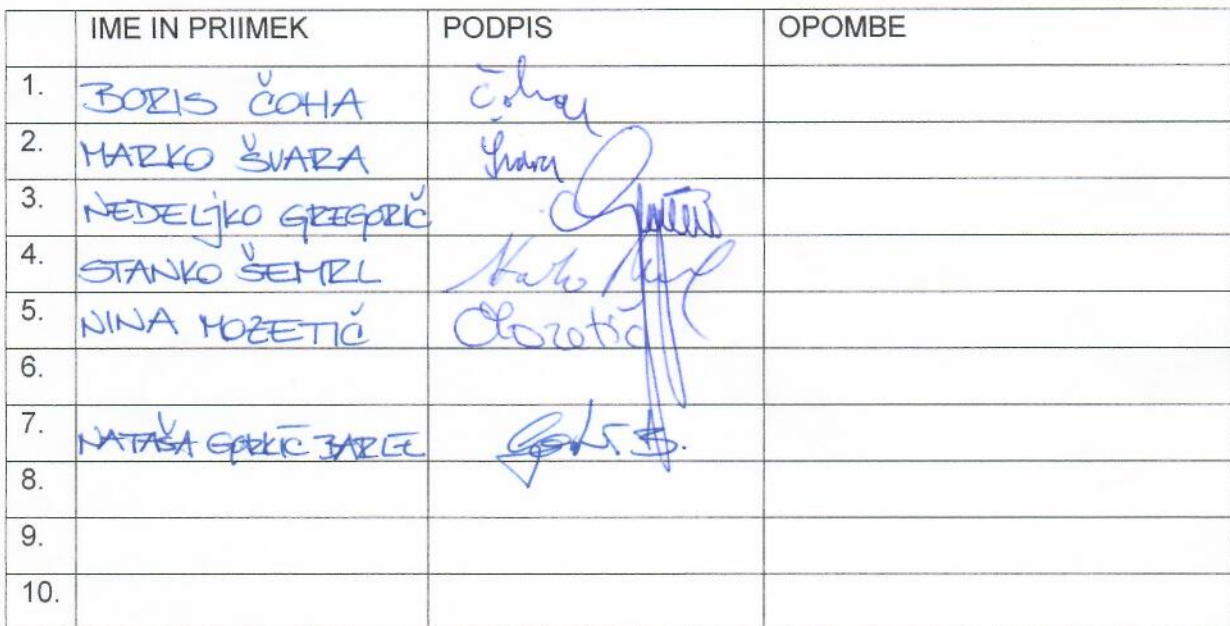 IME IN PRIIMEK PODPIS OPOMBE
1. BORIS ČOHA Čoha
2. MARKO ŠVARA Švara
3. NEDELJKO GREGORIČ
4. STANKO ŠEMRL Stanko
5. NINA MOZETIČ Mozetič
6.
7. NATAŠA GORKIČ BARLE
8.
9.
10.